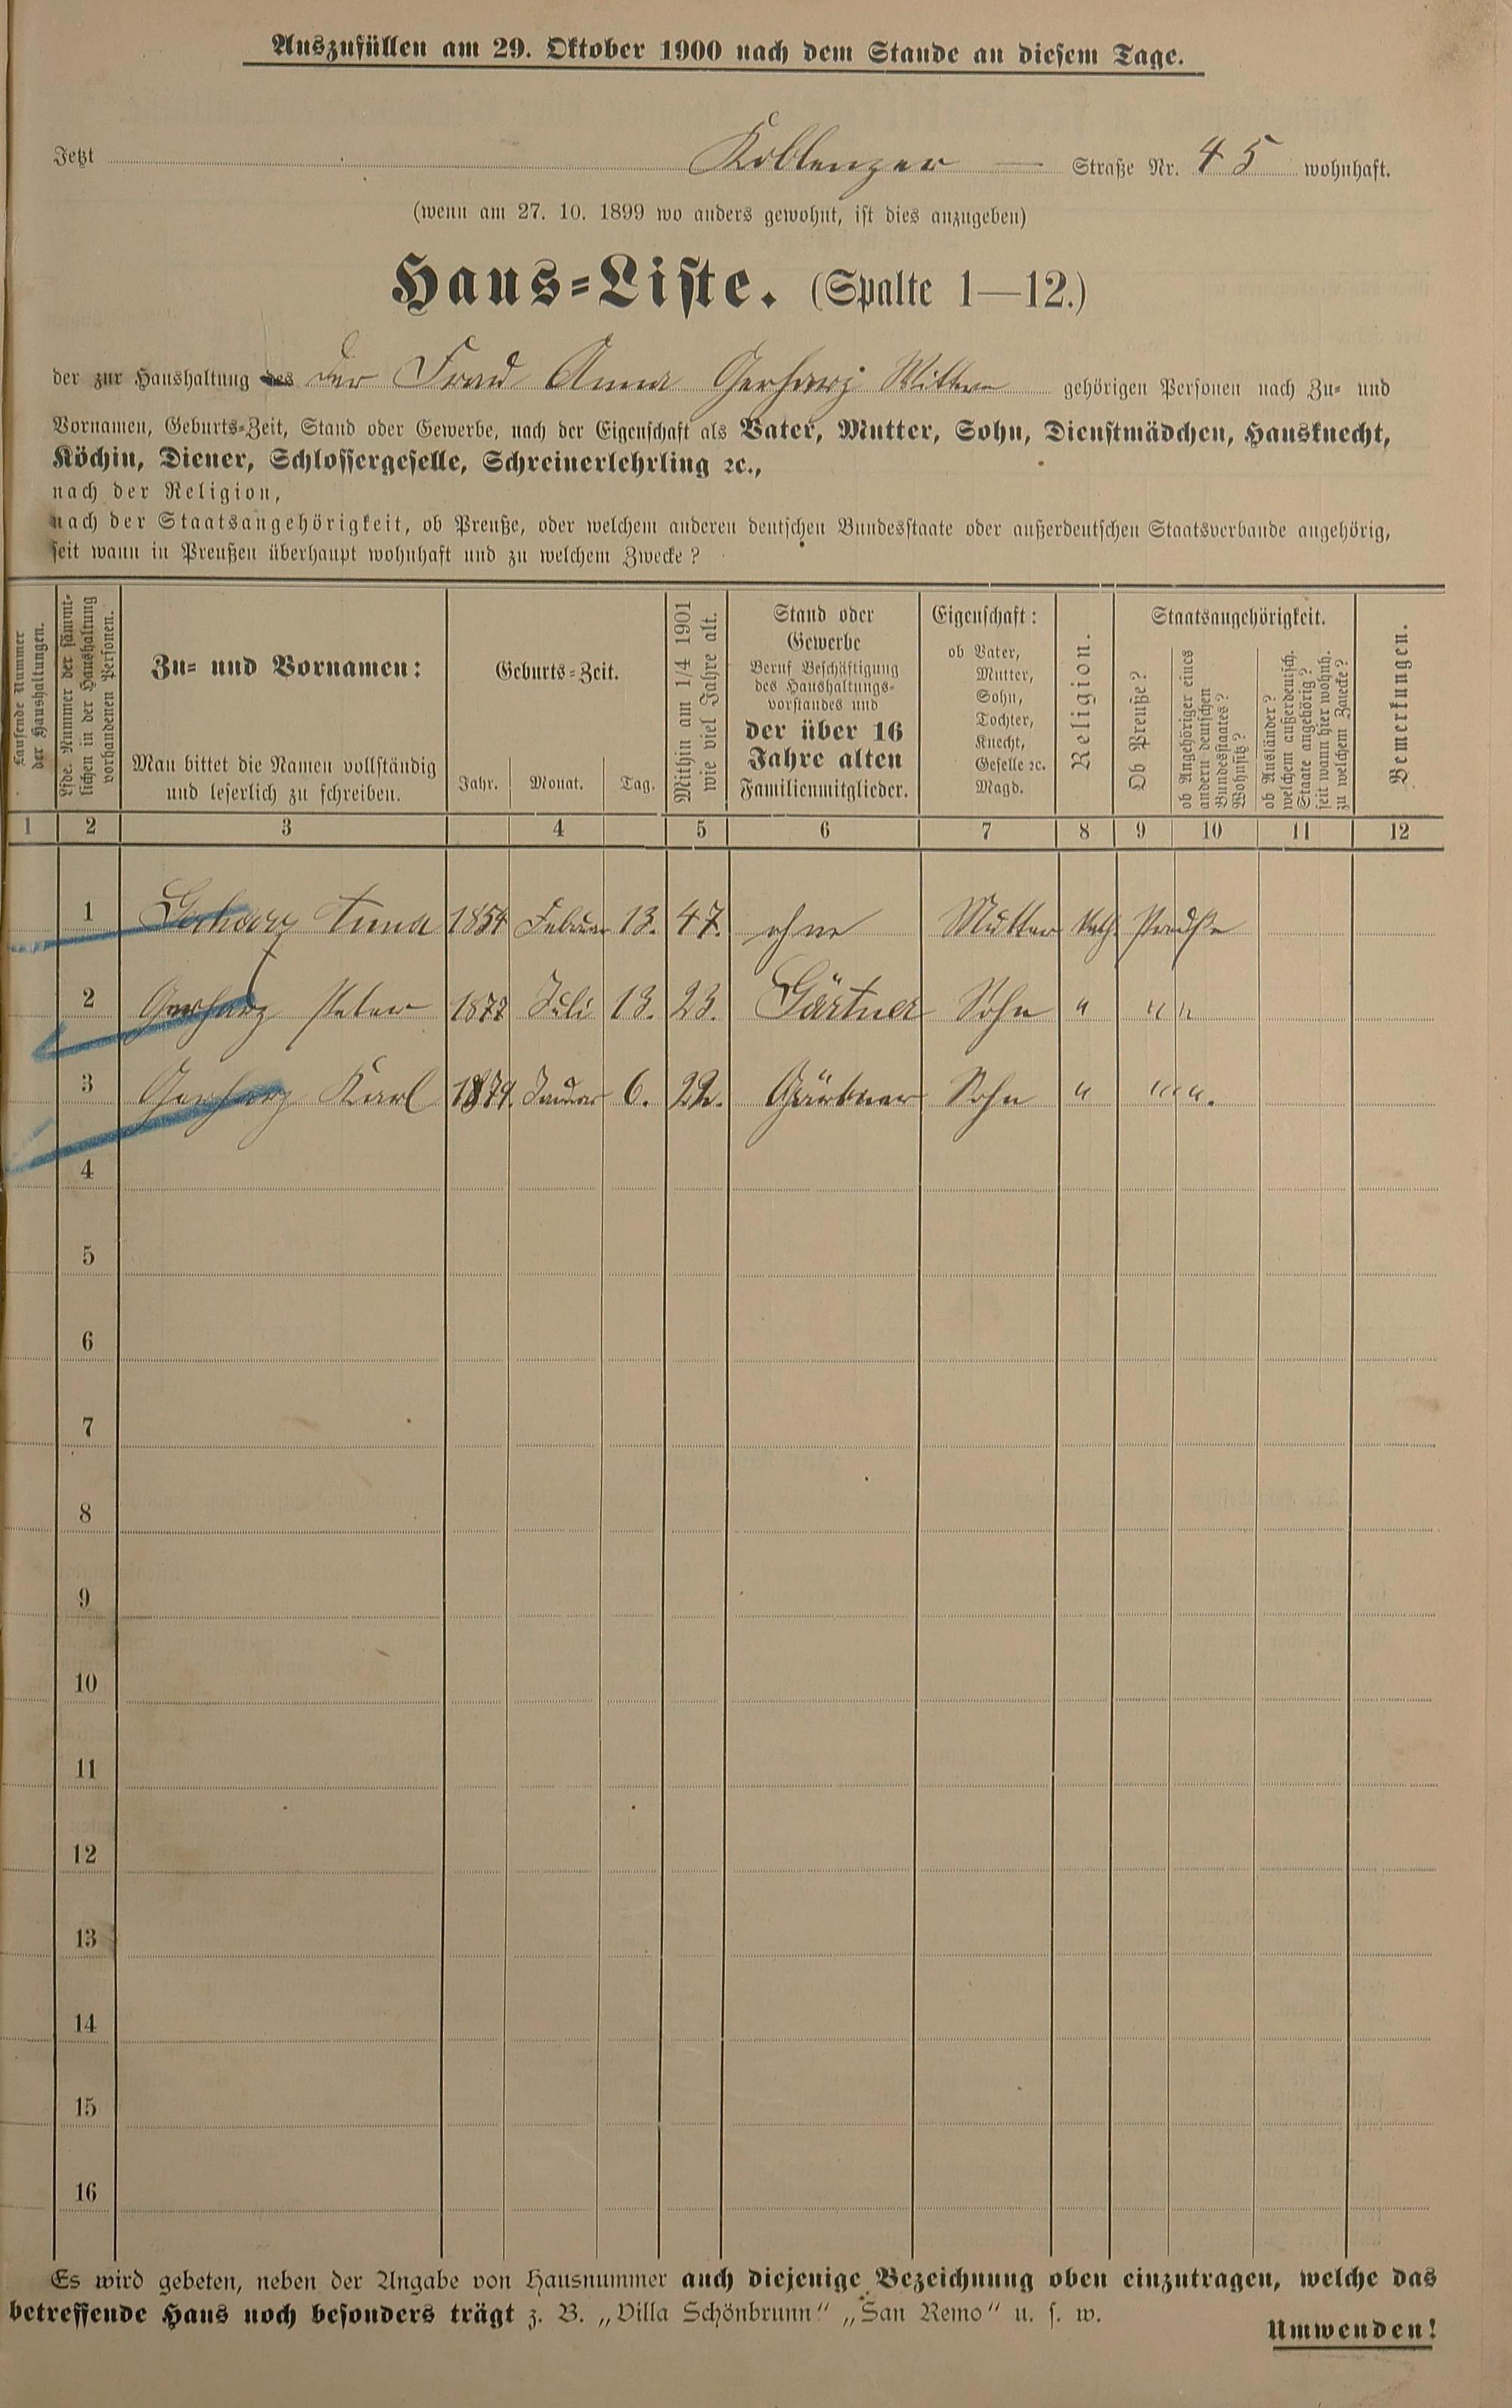 Auszufüllen am 29. Oktober 1900 nach dem Stande an diesem Tage.
Jetzt Koblenzer — Straße Nr. 45 wohnhaft.
(wenn am 27. 10. 1899 wo anders gewohnt, ist dies anzugeben)
Haus-Liste. (Spalte 1—12.)
der zur Haushaltung des der Frau Anna Gerharz Wittwe gehörigen Personen nach Zu- und
Vornamen, Geburts-Zeit, Stand oder Gewerbe, nach der Eigenschaft als Vater, Mutter, Sohn, Dienstmädchen, Hausknecht,
Köchin, Diener, Schlossergeselle, Schreinerlehrling ꝛc.,
nach der Religion,
nach der Staatsangehörigkeit, ob Preuße, oder welchem anderen deutschen Bundesstaate oder außerdeutschen Staatsverbande angehörig,
seit wann in Preußen überhaupt wohnhaft und zu welchem Zwecke?
Laufende Nummer
der Haushaltungen.
Lfde. Nummer der sämmt-
lichen in der Haushaltung
vorhandenen Personen.
Zu- und Vornamen:
Man bittet die Namen vollständig
und leserlich zu schreiben.
Geburts-Zeit.
Jahr. Monat. Tag.
Mithin am 1/4 1901
wie viel Jahre alt.
Stand oder
Gewerbe
Beruf Beschäftigung
des Haushaltungs-
vorstandes und
der über 16
Jahre alten
Familienmitglieder.
Eigenschaft:
ob Vater,
Mutter,
Sohn,
Tochter,
Knecht,
Geselle ꝛc.
Magd.
Religion.
Staatsangehörigkeit.
Ob Preuße?
ob Angehöriger eines
andern deutschen
Bundesstaates?
Wohnsitz?
ob Ausländer?
welchem außerdeutsch.
Staate angehörig?
seit wann hier wohnh.
zu welchem Zwecke?
Bemerkungen.
1 2 3 4 5 6 7 8 9 10 11 12
1 Gerharz Anna 1854 Februar 13. 47. ohne Mutter Kath. Preuße
2 Gerharz Peter 1877 Juli 13. 23. Gärtner Sohn " " "
3 Gerharz Karl 1879. Januar 6. 22. Gärtner Sohn " " " ".
4
5
6
7
8
9
10
11
12
13
14
15
16
Es wird gebeten, neben der Angabe von Hausnummer auch diejenige Bezeichnung oben einzutragen, welche das
betreffende Haus noch besonders trägt z. B. „Villa Schönbrunn“ „San Remo“ u. s. w.
Umwenden!